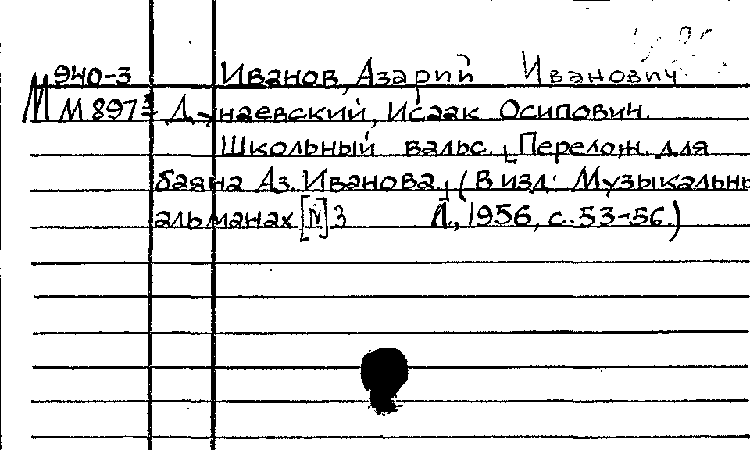 940-3 Иванов, Азарий Иванович
М М 897 Дунаевский, Исаак Осипович.
Школьный вальс. [Перелож. для
баяна Аз. Иванова.] (В изд: Музыкальны
альманах [№] 3 Л., 1956, с. 53-56.)